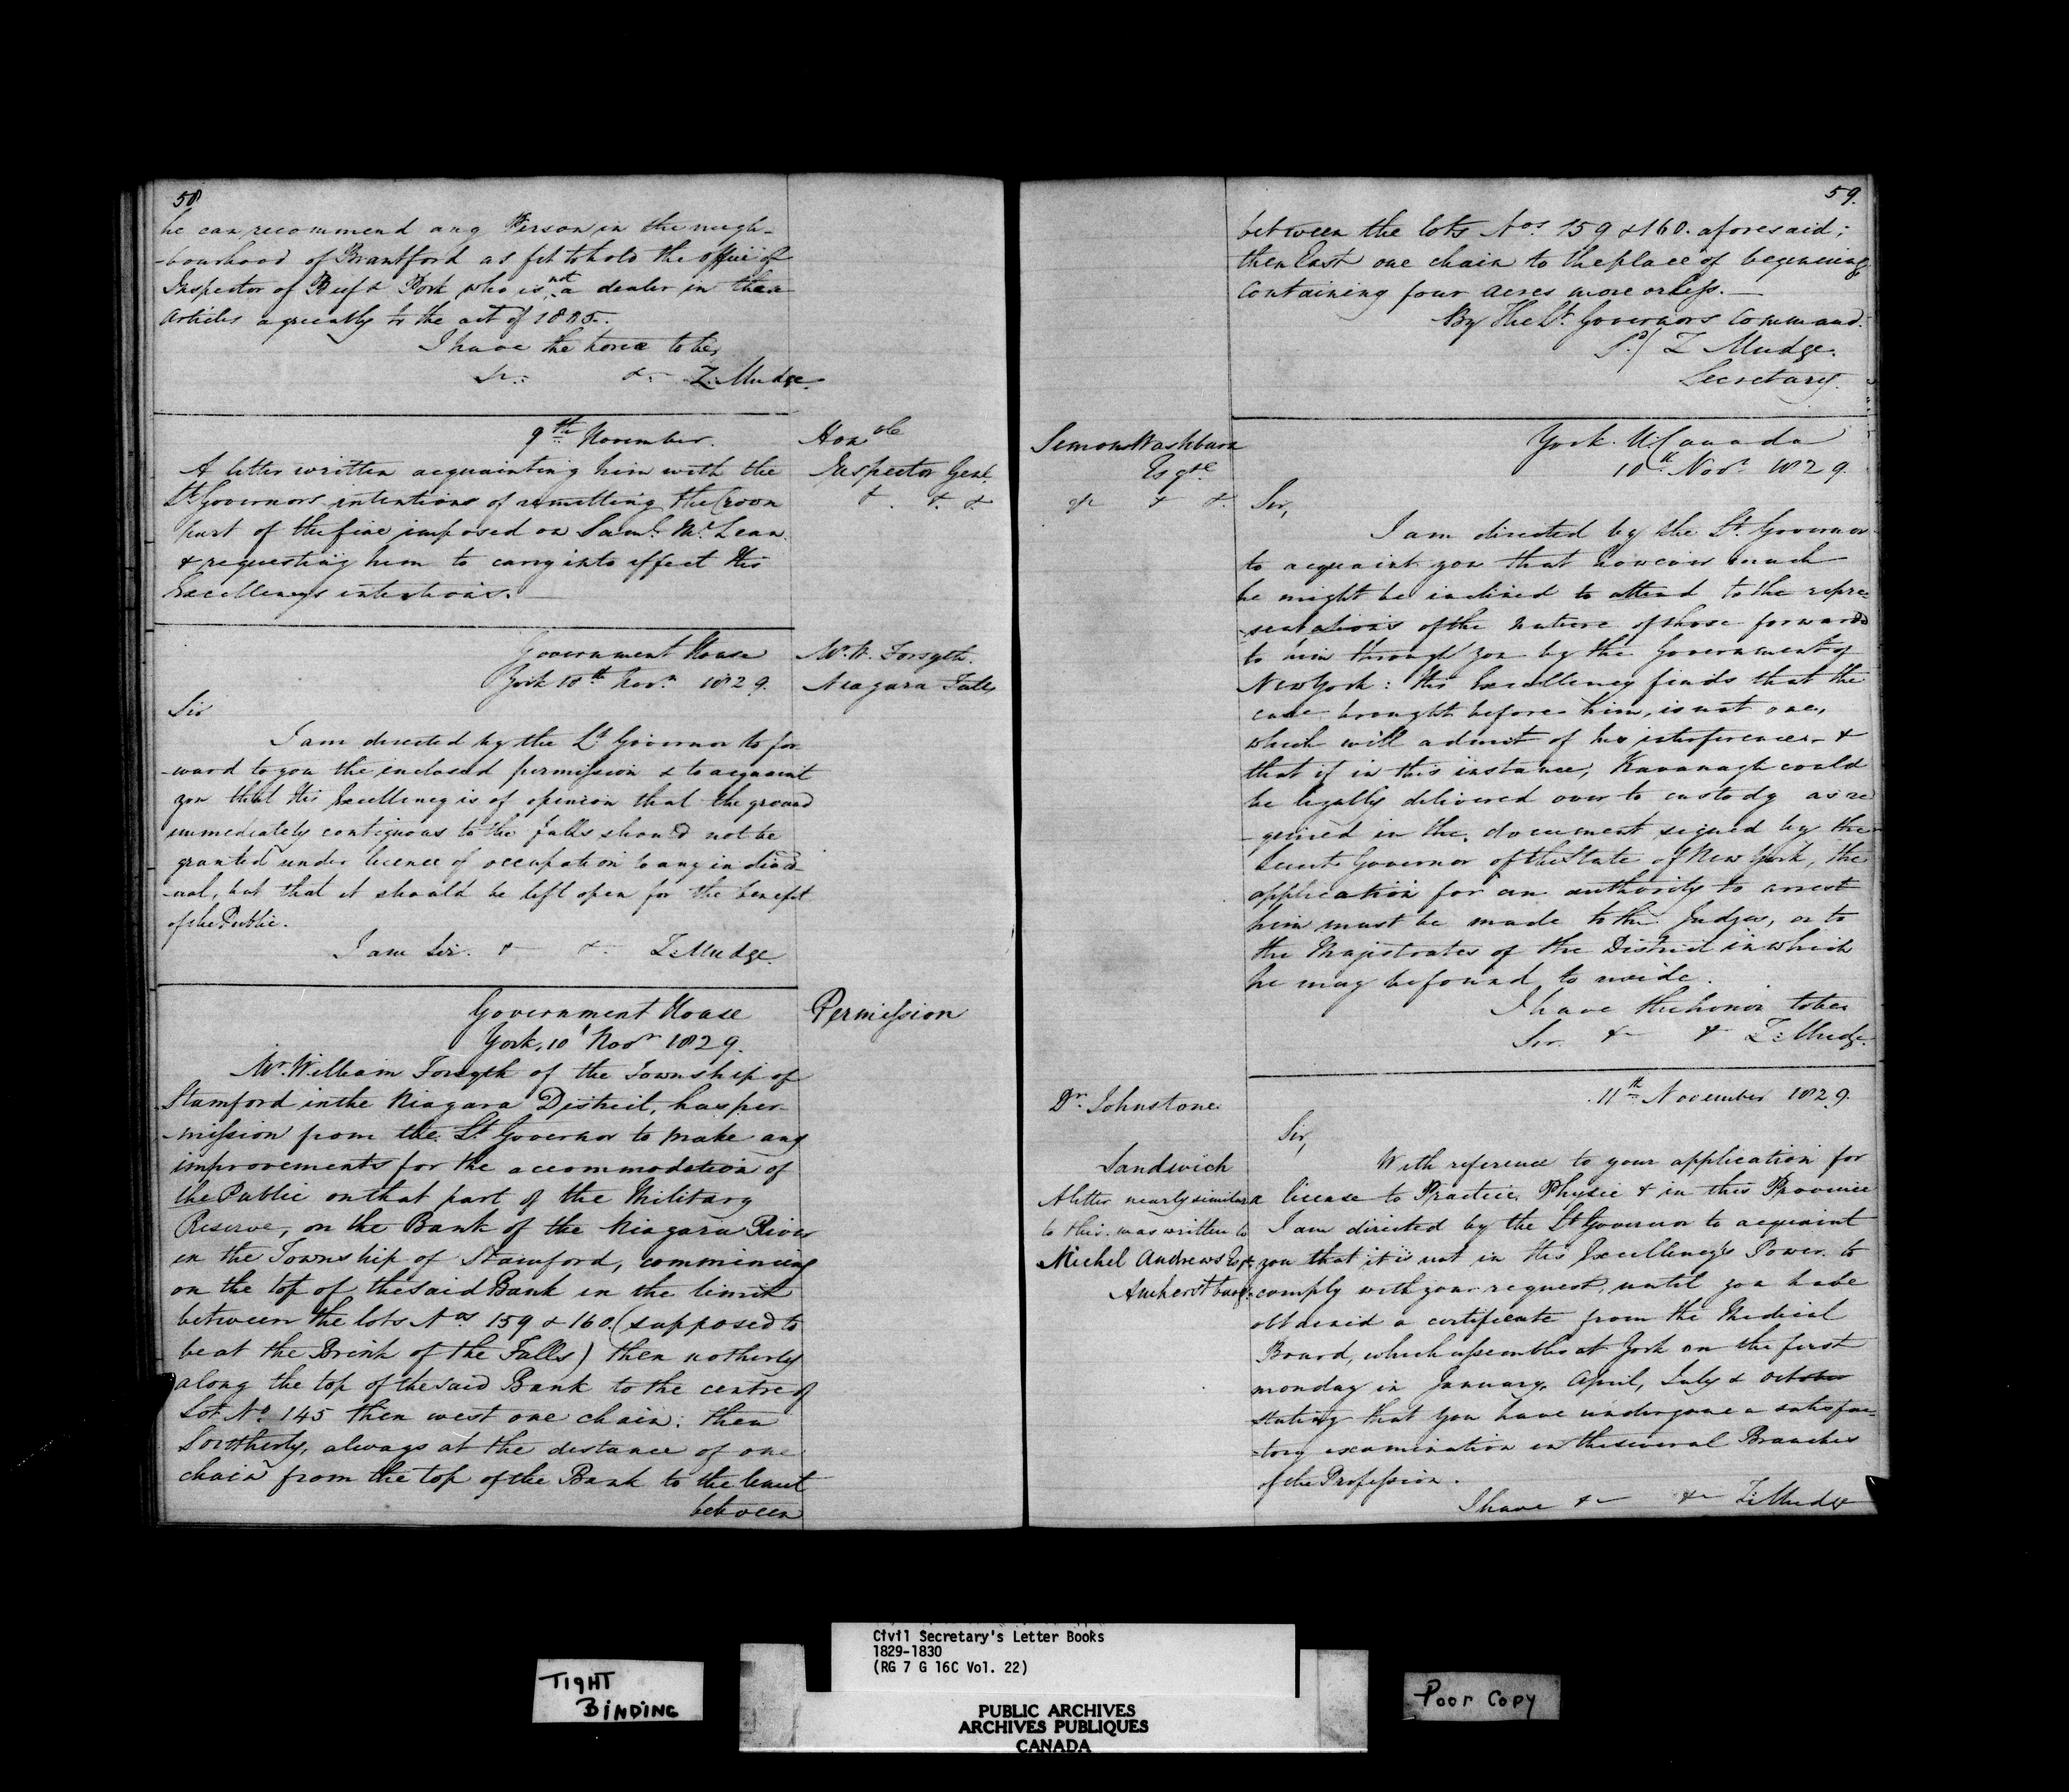 58
he can recommend any Person in the neigh-
-bourhood of Brantford as fit to hold the office of
Inspector of Beef & Pork who is not a dealer in these
articles agreeably to the act of 1805.
I have the honor to be,
Sr. &c Z. Mudge.
9th November.
Honble
Inspector Genl.
& & &
A letter written acquainting him with the
Lt Governors intentions of remitting the Crown
part of the fine imposed on Saml. McLean
& requesting him to carry into effect His
Excellencys intentions.
Mr. W. Forsyth.
Niagara Falls
Government House
York 10th Novr. 1829.
Sir
I am directed by the Lt Governor to for
-ward to you the inclosed permission & to acquaint
you that His Excellency is of opinion that the ground
immediately contiguous to the falls should not be
granted under licence of occupation to any individ-
-ual, but that it should be left open for the benefit
of the Public.
I am Sir. & & Z: Mudge.
Permission
Government House
York, 10t Novr 1829.
Mr. William Forsyth of the Township of
Stamford in the Niagara District, has per-
-mission from the Lt Governor to make any
improvements for the accommodation of
the Public on that part of the Military
Reserve, on the Bank of the Niagara River
in the Township of Stamford, commencing
on the top of the said Bank in the limit
between the lots Nos 159 & 160. (supposed to
be at the Brink of the Falls) then northerly
along the top of the said Bank to the centre of
Lot No. 145 then west one chain: then
Southerly, always at the distance of one
chain from the top of the Bank to the limit
between
59.
between the lots Nos. 159 & 160. aforesaid;
then East one chain to the place of beginning
Containing four acres more or less.
By The Lt. Governors Command.
Sd/ Z Mudge.
Secretary.
Simon Washburn
Esqre
& & &.
York. U. Canada
10th Novr. 1829.
Sir,
I am directed by the Lt. Governor
to acquaint you that however much
he might be inclined to attend to the repre-
-sentations of the nature of those forwarded
to him through you by the Government of
New York: His Excellency finds that the
case brought before him, is not one,
which will admit of his interference, &
that if in this instance, Kavanagh could
be legally delivered over to custody as re
-quired in the document signed by the
Lieut Governor of the State of New York, the
application for an authority to arrest
him must be made to the Judges, or to
the Magistrates of the District in which
he may be found to reside.
I have the honor to be
Sir. & & Z: Mudge.
Dr. Johnstone
Sandwich
A letter nearly similar
to this was written to
Michel Andrews Esqr.
Amherstburg.
11th November 1829.
Sir,
With reference to your application for
a license to Practice Physic & in this Province
I am directed by the Lt Governor to acquaint
you that it is not in His Excellency's Power to
comply with your request, until you have
obtained a certificate from the Medical
Board, which assembles at York on the first
monday in January, April, July & October
stating that you have undergone a satisfac-
-tory examination in the several Branches
of the Profession.
I have & & Z: Mudge
TIGHT
BINDING
Civil Secretary's Letter Books
1829-1830
(RG 7 G 16C Vol. 22)
PUBLIC ARCHIVES
ARCHIVES PUBLIQUES
CANADA
Poor Copy